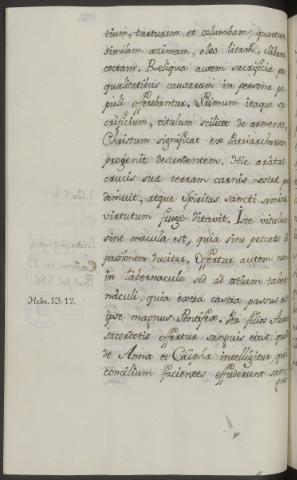 tium, turturem et columbam, quartum
similam azimam, oleo litam, cliban
coctam. Reliqua autem sacrificia pr
qualitatibus causarum in persona po
puli offerebantur. Primum itaque sa
crificium, vitulum scilicet de armento,
Christum significat ex Patriarcharum
progenie descendentem. Hic aratro
crucis suae terram carnis nostrae per
domuit, atque Spiritus sancti semine
virtutum fruge ditavit. Iste vitulus
sine macula est, quia sine peccato
passionem ducitur. Offertur autem non
in tabernaculo sed ad ostium taber
náculi, quia extra castra passus est
Hebr. 13. 12.
ipse magnus Pontifex. Per filios Aaron
sacerdotis offertur sanguis eius; quod
de Anna et Caipha intelligitur, qui
concilium facientes effuderunt san
gui